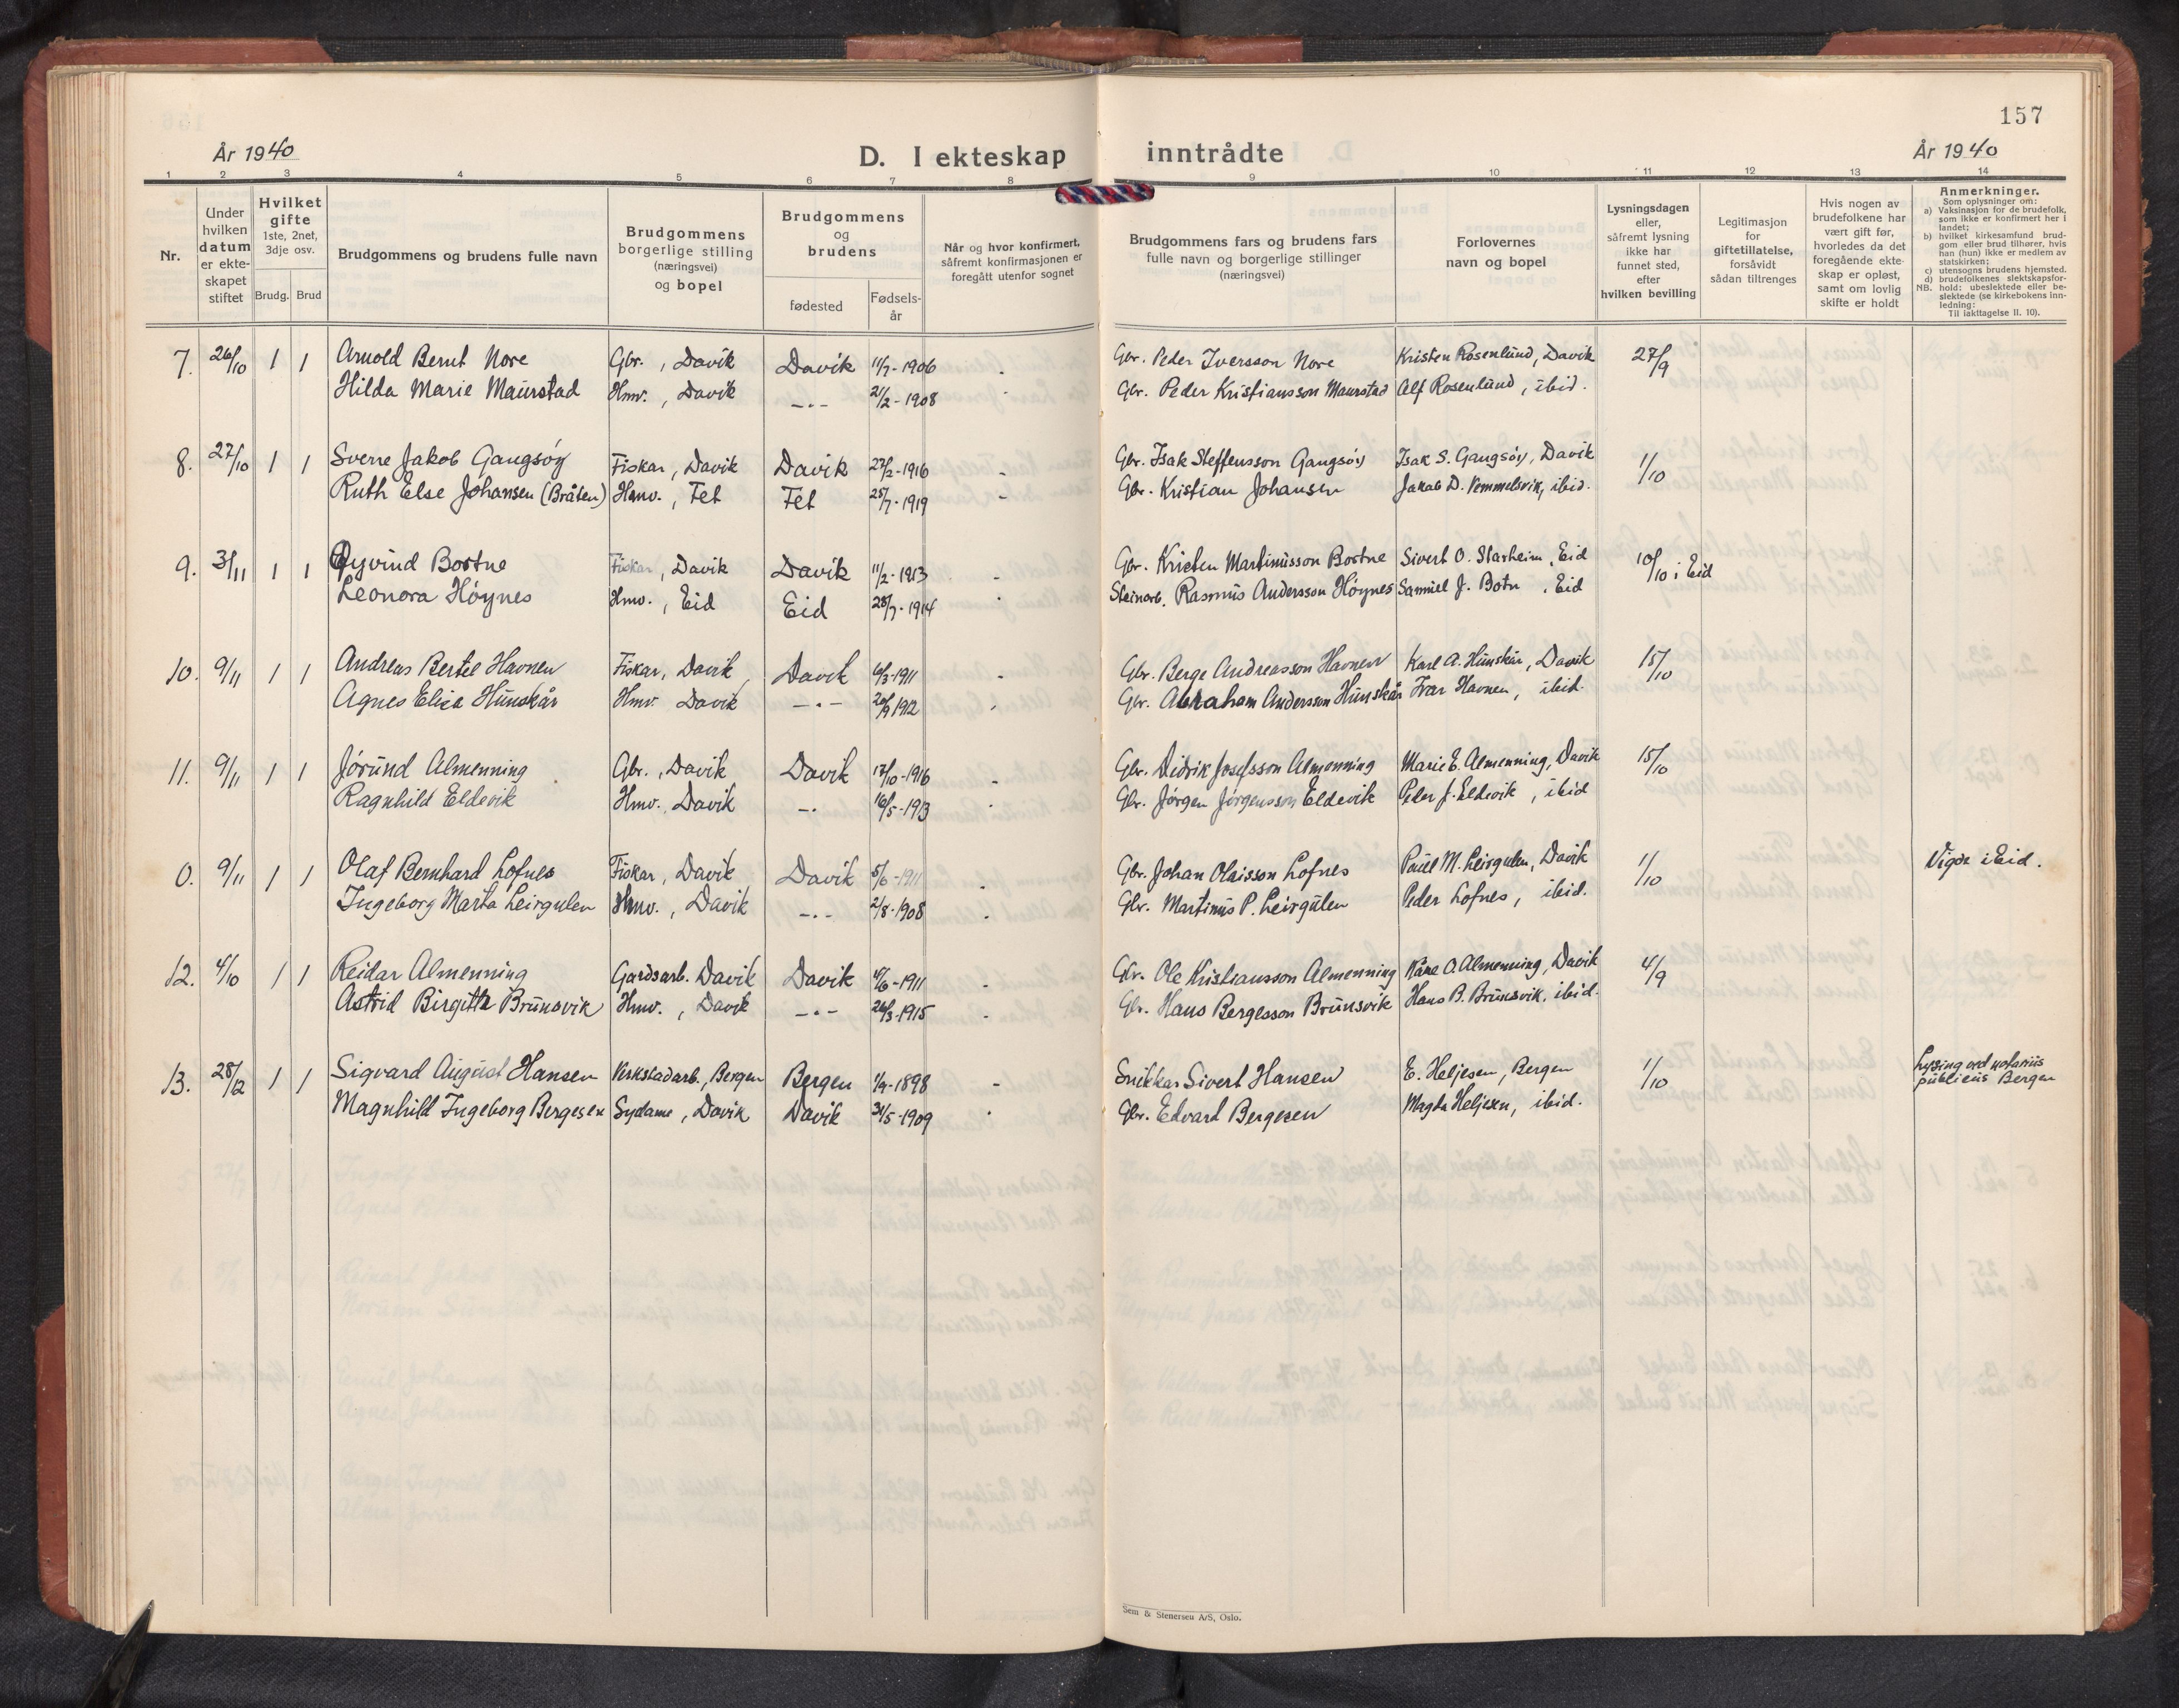 157
År 1940
D. I ekteskap inntrådte
År 1940
1 2 3 4 5 6 7 8 9 10 11 12 13 14
Nr.
Under hvilken datum er ekteskapet stiftet
Hvilket gifte 1ste, 2net, 3dje osv.
Brudg. Brud
Brudgommens og brudens fulle navn
Brudgommens borgerlige stilling (næringsvei) og bopel
Brudgommens og brudens
fødested
Fødselsår
Når og hvor konfirmert, såfremt konfirmasjonen er foregått utenfor sognet
Brudgommens fars og brudens fars fulle navn og borgerlige stillinger (næringsvei)
Forlovernes navn og bopel
Lysningsdagen eller, såfremt lysning ikke har funnet sted, efter hvilken bevilling
Legitimasjon for giftetillatelse, forsåvidt sådan tiltrenges
Hvis nogen av brudefolkene har vært gift før, hvorledes da det foregående ekteskap er opløst, samt om lovlig skifte er holdt
Anmerkninger.
Som oplysninger om:
a) Vaksinasjon for de brudefolk, som ikke er konfirmert her i landet;
b) hvilket kirkesamfund brudgom eller brud tilhører, hvis han (hun) ikke er medlem av statskirken;
c) utensogns brudens hjemsted.
d) brudefolkenes slektskapsforhold: ubeslektede eller beslektede (se kirkebokens innledning:
NB.
Til iakttagelse II. 10).
7. 26/10 1 1 Arnold Bernt Nore Gbr., Davik Davik 11/7-1906 - Gbr. Peder Iversson Nore Kristen Rosenlund, Davik 27/9
Hilda Marie Maurstad Hmv., Davik -.- 21/2-1908 - Gbr. Peder Kristiansson Maurstad Alf Rosenlund, ibid.
8. 27/10 1 1 Sverre Jakob Gangsøy Fiskar, Davik Davik 27/2-1916 - Gbr. Isak Steffensson Gangsøy Isak S. Gangsøy, Davik 1/10
Ruth Else Johansen (Bråten) Hmv., Fet Fet 25/7-1919 - Gbr. Kristian Johansen Jakob D. Vemmelsvik, ibid.
9. 3/11 1 1 Øyvind Bortne Fiskar, Davik Davik 11/2-1913 - Gbr. Kristen Martinusson Bortne Sivert O. Starheim, Eid 10/10 i Eid
Leonora Høynes Hmv., Eid Eid 28/7-1914 - Steinarb. Rasmus Andersson Høynes Samuel J. Botn, Eid
10. 9/11 1 1 Andreas Bertel Havnen Fiskar, Davik, Davik 6/3-1911 - Gbr. Berge Andreasson Havnen Karl A. Hunskår, Davik 15/10
Agnes Elise Hunskår Hmv. Davik -.- 20/9 1912 - Gbr. Abraham Andersson Hunskår Ivar Havnen, ibid.
11. 9/11 1 1 Jørund Almenning Gbr., Davik Davik 17/10-1916 - Gbr. Didrik Josefsson Almenning Marie E. Almenning, Davik 15/10
Ragnhild Eldevik Hmv. Davik -.- 16/5-1913 - Gbr. Jørgen Jørgensson Eldevik Peder J. Eldevik, ibid
0. 9/11 1 1 Olaf Bernhard Lofnes Fiskar, Davik Davik 5/6-1911 - Gbr. Johan Olaisson Lofnes Paul M. Leirgulen, Davik 1/10 Vigde i Eid.
Ingeborg Marta Leirgulen Hmv., Davik -.- 2/8-1908 - Gbr. Martinus P. Leirgulen Peder Lofnes, ibid.
12. 4/10 1 1 Reidar Almenning Gardsarb. Davik Davik 4/6-1911 - Gbr. Ole Kristiansson Almenning Kåre O. Almenning, Davik 4/9
Astrid Birgitta Brunsvik Hmv., Davik -.- 26/3-1915 - Gbr. Hans Bergesson Brunsvik Hans B. Brunsvik, ibid.
13. 28/12 1 1 Sigvard August Hansen Verkstadarb., Bergen Bergen 1/9-1898 - Snikkar Sivert Hansen E. Heljesen, Bergen 1/10 Lysing ved notarius publicus Bergen
Magnhild Ingeborg Bergesen Sydame, Davik Davik 31/5-1909 - Gbr. Edvard Bergesen Magda Heljesen, ibid.
Sem & Stenersen A/S, Oslo.